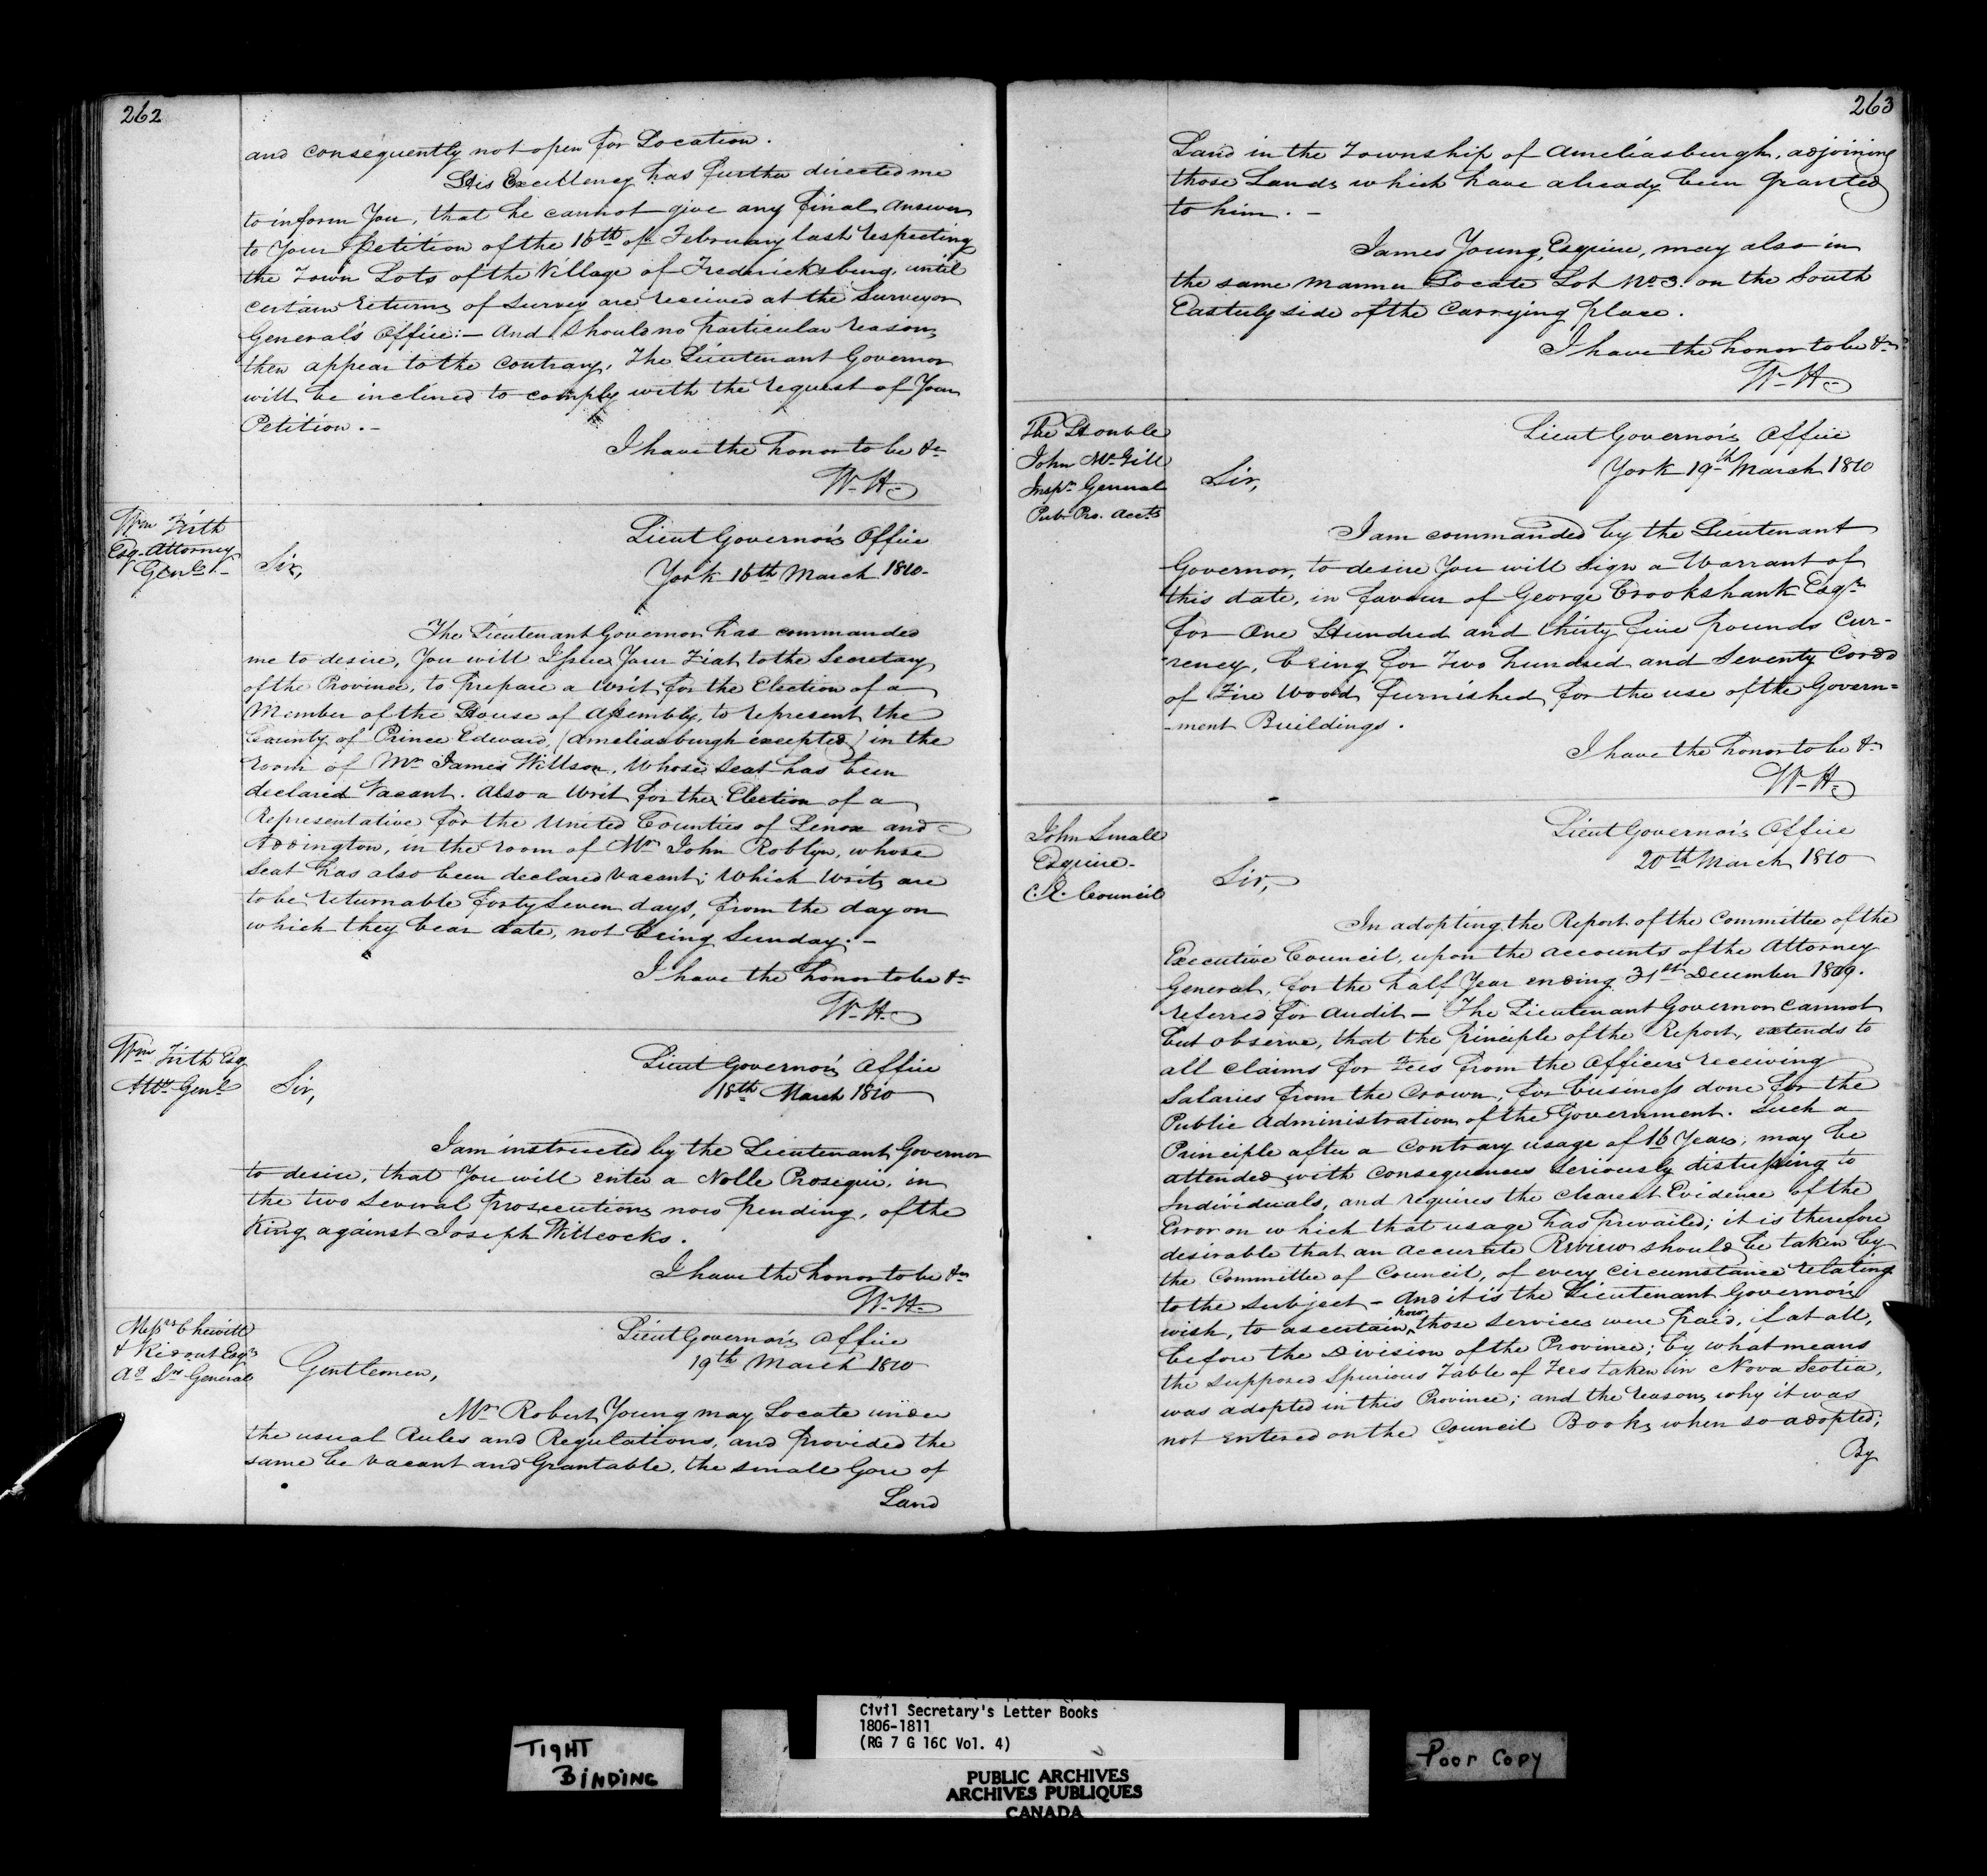 262
and consequently not open for Location.
His Excellency has further directed me
to inform You, that he cannot give any final answer
to Your Petition of the 16th of February last respecting
the Town Lots of the Village of Fredericksburg, until
certain returns of Survey are received at the Surveyor
General's Office:- And should no particular reasons
then appear to the contrary, The Lieutenant Governor
will be inclined to comply with the request of Your
Petition.-
I have the honor to be &c
W. H.
Wm Firth
Esq. Attorney
Genl.
Lieut Governor's Office
York 16th March 1810-
Sir,
The Lieutenant Governor has commanded
me to desire, You will Issue Your Fiat to the Secretary
of the Province, to prepare a Writ for the Election of a
Member of the House of Assembly, to represent the
County of Prince Edward, (Ameliasburgh excepted) in the
room of Mr James Willson, Whose Seat has been
declared Vacant. Also a Writ for the Election of a
Representative for the United Counties of Lenox and
Addington, in the room of Mr John Roblyn, whose
Seat has also been declared vacant; Which Writs are
to be returnable forty Seven days, from the day on
which they bear date, not being Sunday.-
I have the honor to be &c
W. H.
Wm Firth Esq
Atty Genl
Lieut Governor's Office
18th March 1810
Sir,
I am instructed by the Lieutenant Governor
to desire, that You will enter a Nolle Prosequi, in
the two Several prosecutions now pending, of the
King against Joseph Willcocks.
I have the honor to be &c
W. H.
Messrs Chewitt
& Ridout Esqrs
Ag Sr General
Lieut Governor's Office
19th March 1810
Gentlemen,
Mr Robert Young may Locate under
the usual Rules and Regulations, and provided the
same be Vacant and Grantable, the small Gore of
Land
263
Land in the Township of Ameliasburgh, adjoining
those Lands which have already been Granted
to him.-
James Young, Esquire, may also in
the same manner Locate Lot No 3. on the South
Easterly side of the Carrying place.
I have the honor to be &c
W. H.
The Honble
John McGill
Inspr General
Pub. Pro. Accts
Lieut Governor's Office
York 19th March 1810
Sir,
I am commanded by the Lieutenant
Governor, to desire You will sign a Warrant of
this date, in favour of George Crookshank Esqr
for One Hundred and thirty five pounds Cur-
rency, being for Two hundred and Seventy Cords
of Fire Wood furnished for the use of the Govern=
-ment Buildings.
I have the honor to be &c
W. H.
John Small
Esquire-
C. E. Council
Lieut Governor's Office
20th March 1810
Sir,
In adopting the Report of the Committee of the
Executive Council, upon the accounts of the Attorney
General, for the half Year ending 31st December 1809.
referred for Audit - The Lieutenant Governor cannot
but observe, that the Principle of the Report, extends to
all claims for Fees from the Officers receiving
Salaries from the Crown, for business done for the
Public Administration of the Government. Such a
Principle after a Contrary usage of 16 Years, may be
attended with Consequences seriously distressing to
Individuals, and requires the clearest Evidence of the
Error on which that usage has prevailed; it is therefore
desirable that an accurate Review should be taken by
the Committee of Council, of every circumstance relating
to the subject - And it is the Lieutenant Governor's
wish, to ascertain how those services were paid, if at all,
before the Division of the Province; by what means
the supposed Spurious Table of Fees taken in Nova Scotia,
was adopted in this Province; and the reasons why it was
not entered on the Council Books when so adopted;
By
TIGHT
BINDING
Civil Secretary's Letter Books
1806-1811
(RG 7 G 16C Vol. 4)
PUBLIC ARCHIVES
ARCHIVES PUBLIQUES
CANADA
Poor Copy